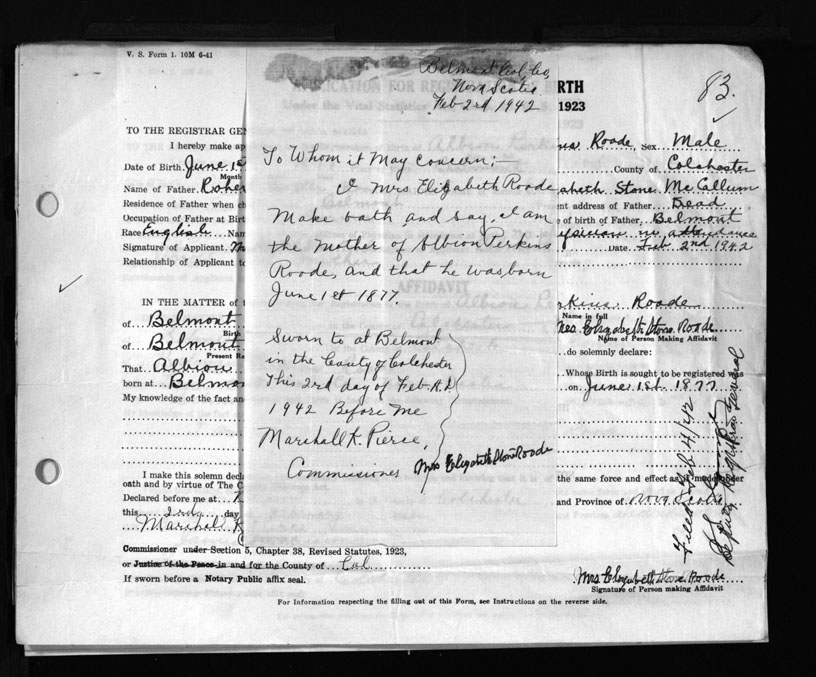 V. S. Form 1. 10M 6-41
Belmont Col. Co,
Nova Scotia
Feb 2nd 1942
83.
APPLICATION FOR REG BIRTH
Under the Vital Statistics 1923
TO THE REGISTRAR GEN
I hereby make ap
Roode, Sex Male
Date of Birth June 1st
Month
County of Colchester
Name of Father Rober
abeth Stone McCallum
Residence of Father when ch
ent address of Father Dead
Occupation of Father at Birt
e of birth of Father, Belmont
Race English Nam
ysician in attendance
Signature of Applicant M
Date Feb 2nd 1942
Relationship of Applicant to
To Whom it May Concern;—
I Mrs Elizabeth Roode
Make oath and say, I am
the Mother of Albion Perkins
Roode, and that he was born
June 1st 1877.
Sworn to at Belmont
in the County of Colchester
This 2nd day of Feb A.D.
1942 Before Me
Marshall K. Pierce,
Commissioner
Mrs Elizabeth Stone Roode
AFFIDAVIT
IN THE MATTER OF t
rkins Roode
Name in full
of Belmont
Birth
Mrs Elizabeth Stone Roode
Name of Person Making Affidavit
of Belmont
Present Re
do solemnly declare:
That Albion
Whose Birth is sought to be registered was
born at Belmo
on June 1st 1877
My knowledge of the fact an
I make this solemn decla
the same force and effect as if made under
oath and by virtue of The C
Declared before me at
and Province of Nova Scotia
this 2nd day
Marshal K
Filed Feb 4/42
Deputy Registrar General
Commissioner under Section 5, Chapter 38, Revised Statutes, 1923,
or Justice of the Peace in and for the County of Col
If sworn before a Notary Public affix seal.
Mrs Elizabeth Stone Roode
Signature of Person making Affidavit
For Information respecting the filling out of this Form, see Instructions on the reverse side.